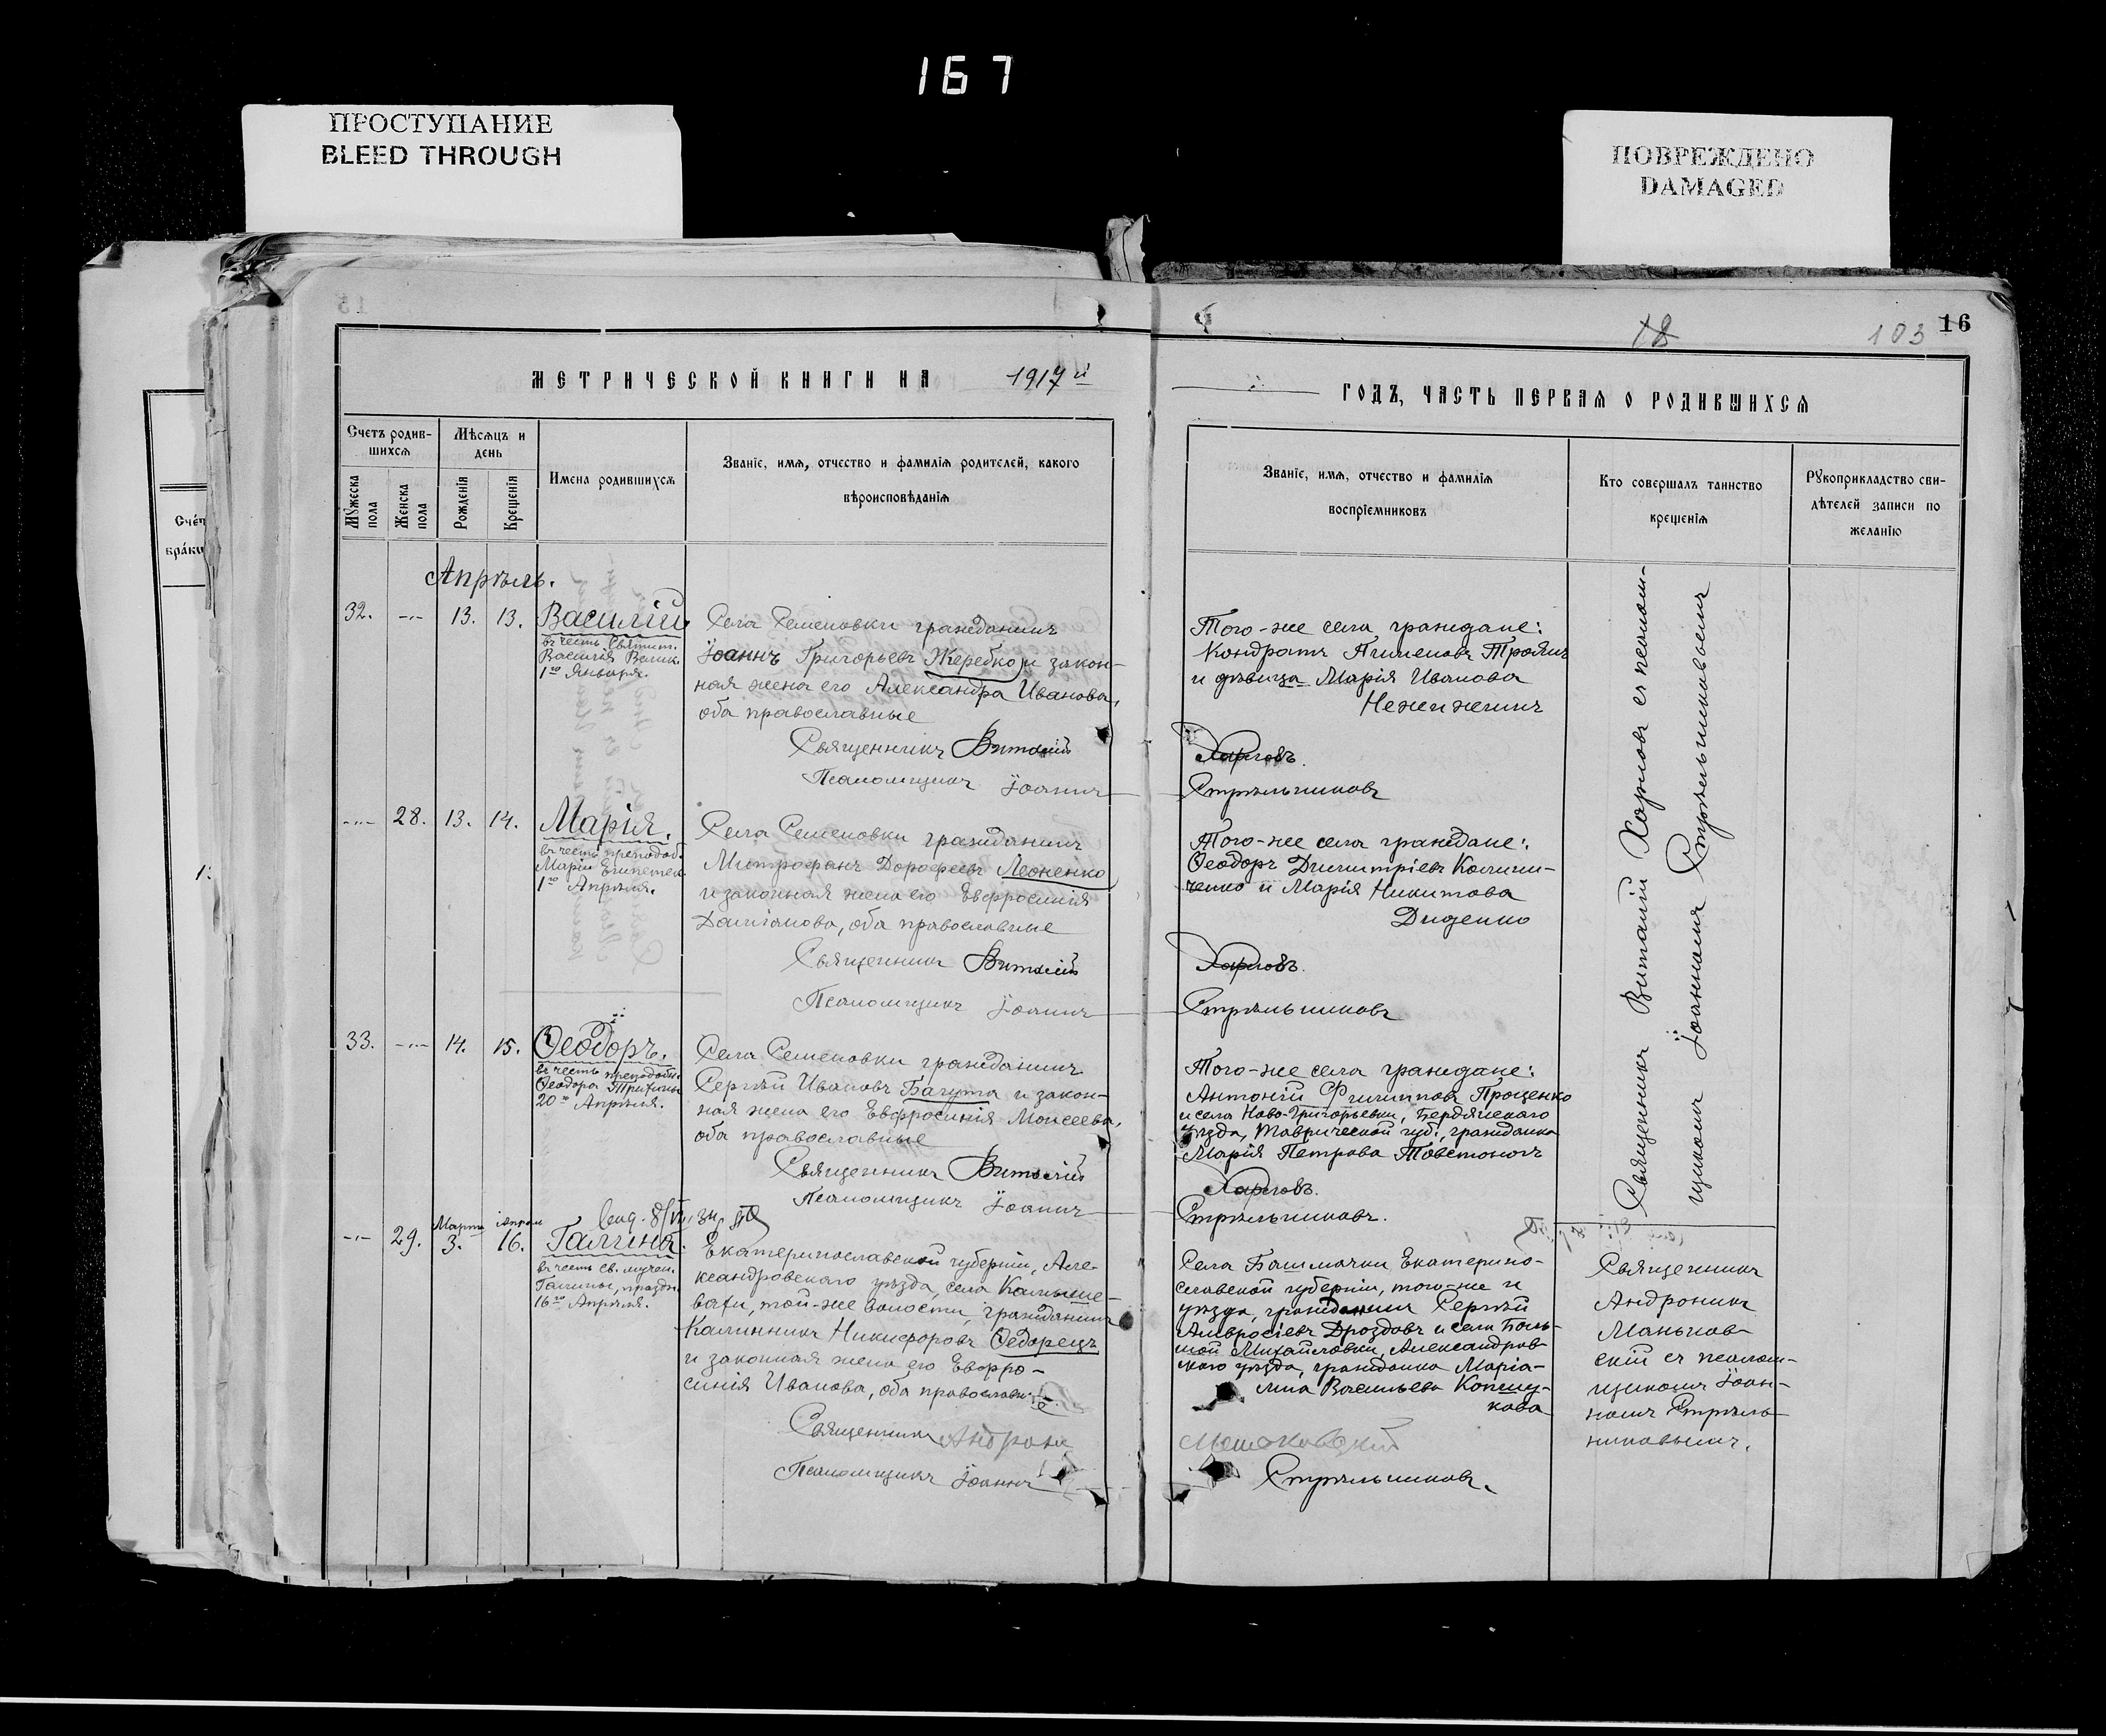 167
ПРОСТУПАНИЕ
BLEED THROUGH
ПОВРЕЖДЕНО
DAMAGED
18
103 16
МЕТРИЧЕСКОЙ КНИГИ НА 1917й
ГОДЪ, ЧАСТЬ ПЕРВАЯ О РОДИВШИХСЯ
Счетъ родив-
шихся
Мужеска пола
Женска пола
Мѣсяцъ и
день
Рожденія
Крещенія
Имена родившихся
Званіе, имя, отчество и фамилія родителей, какого
вѣроисповѣданія
Званіе, имя, отчество и фамилія
воспріемниковъ
Кто совершалъ таинство
крещенія
Рукоприкладство сви-
дѣтелей записи по
желанію
Апрѣль.
32. 13. 13. Василій
въ честь Святит.
Василія Велик.
1го Января.
Села Семеновки гражданинъ
Іоаннъ Григорьевъ Жеребко и закон-
ная жена его Александра Иванова,
оба православные
Священникъ Виталій
Псаломщикъ Іоаннъ
Того-же села граждане:
Кондратъ Пименовъ Троянъ
и дѣвица Марія Иванова
Нежижимъ
Харловъ.
Стрѣльниковъ
28. 13. 14. Марія.
въ честь преподоб.
Маріи Египетск.
1го Апрѣля.
Села Семеновки гражданинъ
Митрофанъ Дорофеевъ Леоненко
и законная жена его Евфросинія
Даміанова, оба православные
Священникъ Виталій
Псаломщикъ Іоаннъ
Того-же села граждане:
Ѳеодоръ Димитріевъ Калини-
ченко и Марія Никитова
Диденко
Харловъ.
Стрѣльниковъ
33. 14. 15. Ѳеодоръ.
въ честь преподобн.
Ѳеодора Трихины
20го Апрѣля.
Села Семеновки гражданинъ
Сергѣй Ивановъ Багута и закон-
ная жена его Евфросинія Моисеева,
оба православные
Священникъ Виталій
Псаломщикъ Іоаннъ
Того-же села граждане:
Антоній Филиппов Проценко
и села Ново-Григорьевки, Бердянскаго
уѣзда, Таврической губ., гражданка
Марія Петрова Товстоногъ
Харловъ.
Стрѣльниковъ.
Священникъ Виталій Харловъ съ псалом-
щикомъ Іоанномъ Стрѣльниковымъ
29. Марта 3. Апрѣля 16. Галина.
въ честь св. мучен.
Галины, праздн.
16го Апрѣля.
Екатеринославской губерніи, Але-
ксандровскаго уѣзда, села Камыше-
вахи, той-же волости, гражданинъ
Калинникъ Никифоровъ Ѳедорецъ
и законная жена его Евфро-
синія Иванова, оба православные.
Священникъ Андроник
Псаломщикъ Іоаннъ
Села Башмачки Екатерино-
славской губерніи, того-же и
уѣзда, гражданинъ Сергѣй
Амвросіевъ Дроздовъ и села Боль-
шой Михайловки, Александров-
скаго уѣзда, гражданка Маріа-
мна Васильева
Маньковскій
Стрѣльниковъ.
Священникъ
Андроникъ
Маньков-
скій съ псалом-
щикомъ Іоан-
номъ Стрѣль-
никовымъ.